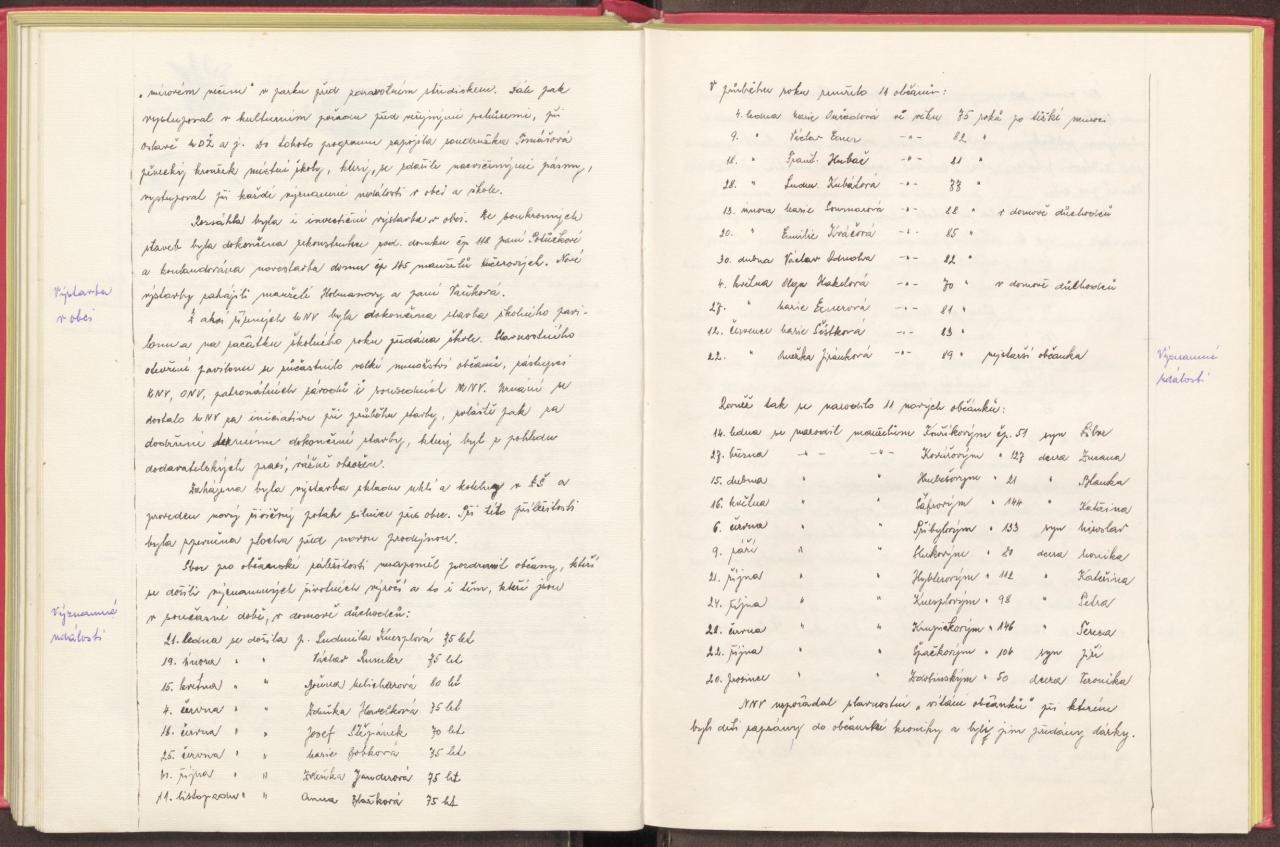 „mírovém věnci" v parku před zdravotním střediskem. Dále pak
vystupoval v kulturním pořadu před veřejnými schůzemi, při
oslavě MDŽ a j. Do tohoto programu zapojila soudružka Tomášová
pěvecký kroužek místní školy, který, se zdařile nacvičenými pásmy,
vystupoval při každé významné události v obci a škole.
Rozsáhlá byla i investiční výstavba v obci. Ze soukromých
staveb byla dokončena rekonstrukce rod. domku čp 118 paní Potůčkové
a kolaudována novostavba domu čp 145 manželů Kučerových. Nové
Výstavba
v obci
výstavby zahájili manželé Holmanovy a paní Vaňková.
Z akcí řízených MNV byla dokončena stavba školního pavi-
lonu a na začátku školního roku předána škole. Slavnostního
otevření pavilonu se zúčastnilo velké množství občanů, zástupci
KNV, ONV, patronátních závodů i sousedních MNV. Uznání se
dostalo MNV za iniciativu při průběhu stavby, zvláště pak za
dodržení termínu dokončení stavby, který byl z pohledu
dodavatelských prací, vážně ohrožen.
Zahájena byla výstavba skladu uhlí a kotelny v ZŠ a
proveden nový živičný potah silnice přes obec. Při této příležitosti
byla zpevněna plocha před novou prodejnou.
Sbor pro občanské záležitosti nezapoměl pozdravit občany, kteří
Významné
události
se dožili významných životních výročí a to i těm, kteří jsou
v současné době, v domově důchodců:
21. ledna se dožila p. Ludmila Knesplová 75 let
19. února " " Václav Rumler 75 let
15. května " " Božena Melicharová 80 let
4. června " " Zdeňka Havelková 75 let
18. června " " Josef Štěpánek 70 let
25. června " " Marie 75 let
října " " Zdeňka Janderová 75 let
11. listopadu " " Anna 75 let
V průběhu roku zemřelo 11 občanů:
4. ledna Marie ve věku 75 roků po těžké nemoci
9. " Václav -"- 82 "
18. " Frant. Hubač -"- 81 "
28. " Ludm. Kubátová -"- 77 "
13. února Marie -"- 88 " v domově důchodců
20. " Emilie Kráčová -"- 85 "
30. dubna Václav -"- 82 "
4. května Olga Hakelová -"- 70 " v domově důchodců
27. " Marie -"- 81 "
12. července Marie Šístková -"- 83 "
22. " Anežka Jiránková -"- 89 " nejstarší občanka
Významné
události
Rovněž tak se narodilo 11 nových občánků:
14. ledna se narodil manželům Kouřikovým čp. 51 syn Libor
27. března -"- -"- Kovářovým " 127 dcera Zuzana
15. dubna " " " 21 " Blanka
16. května " " Čáfovým " 144 " Kateřina
6. června " " Přibylovým " 133 syn Miroslav
9. září " " Hlukovým " 80 dcera Monika
21. října " " Hyblerovým " 112 " Kateřina
24. října " " Knesplovým " 98 " Petra
28. června " " Krupičkovým " 146 " Tereza
22. října " " Špačkovým " 104 syn Jiří
20. prosince " " Zdobinským " 50 dcera Veronika
MNV uspořádal slavnostní „vítání občánků" při kterém
byli děti zapsány do občanské kroniky a byly jim předány dárky.